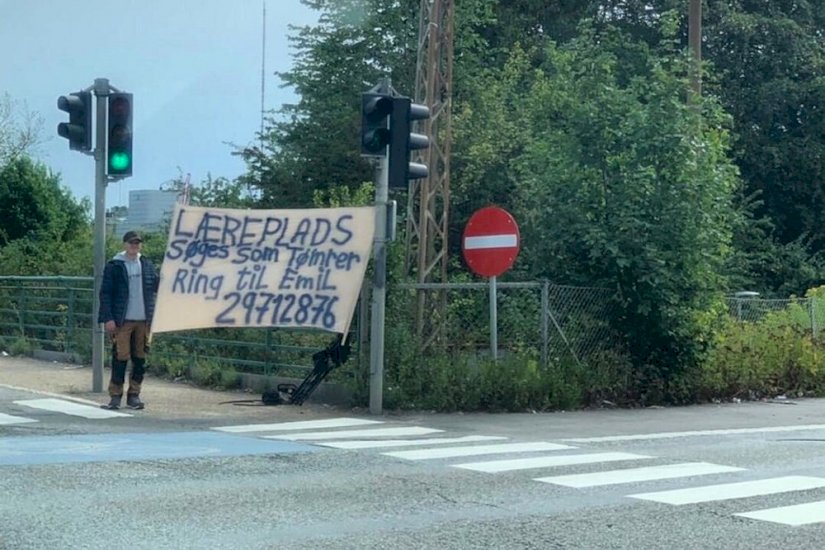 LÆREPLADS
Søges som Tømrer
Ring til Emil
29712876